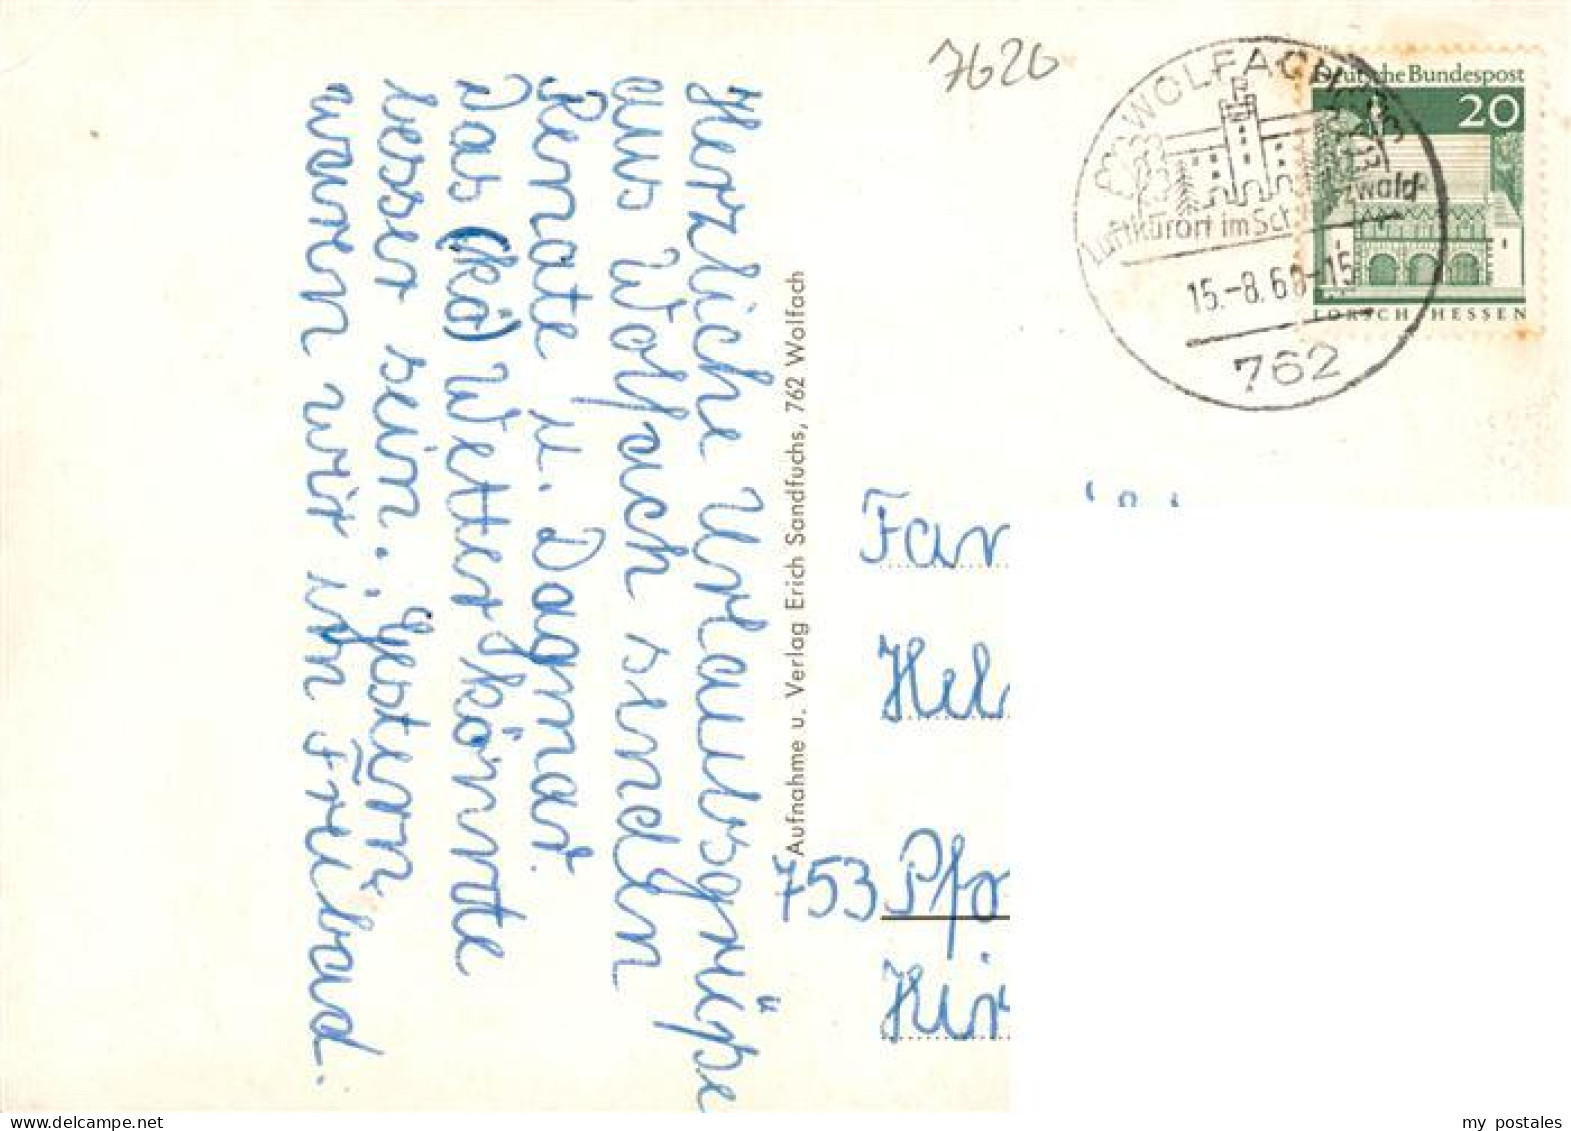 Herzliche Urlaubsgrüße
aus Wolfach senden
Renate u. Dagmar.
Das (kö) Wetter könnte
besser sein. Gestern
waren wir im Freibad.
Aufnahme u. Verlag Erich Sandfuchs, 762 Wolfach
7620
WOLFACH
Luftkurort im Sch zwald
15.-8.68-15
762
Deutsche Bundespost
20
LORSCH HESSEN
Fam
Hel
753 Pfo
Hir
my postales